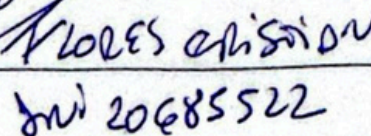 FLORES CRISTIAN
DNI 20685522